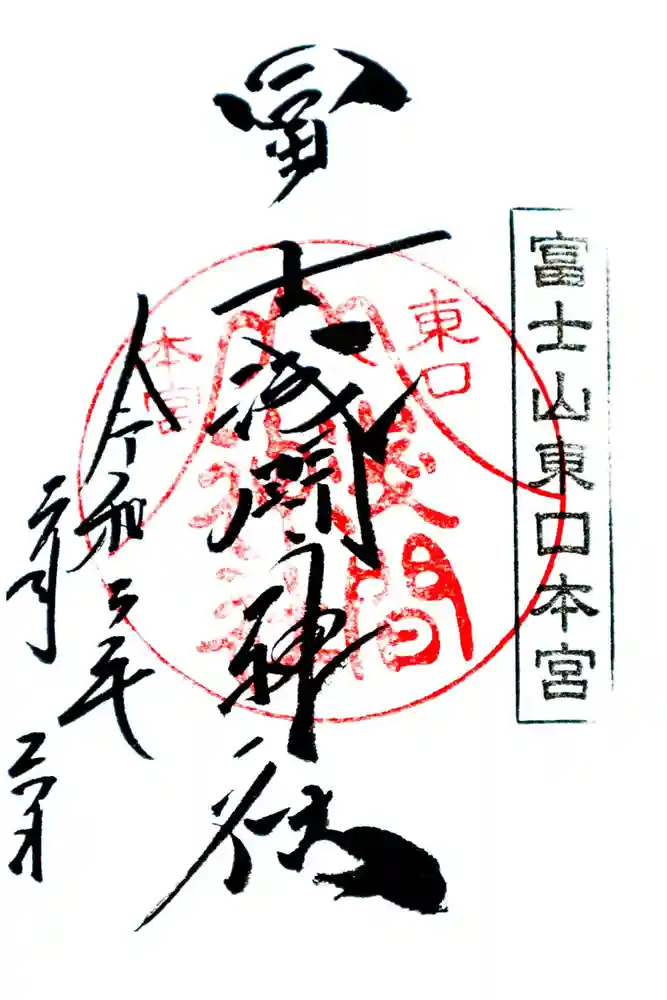 富士山東口本宮
冨士浅間神社
東口
本宮
浅間
神社
令和二年